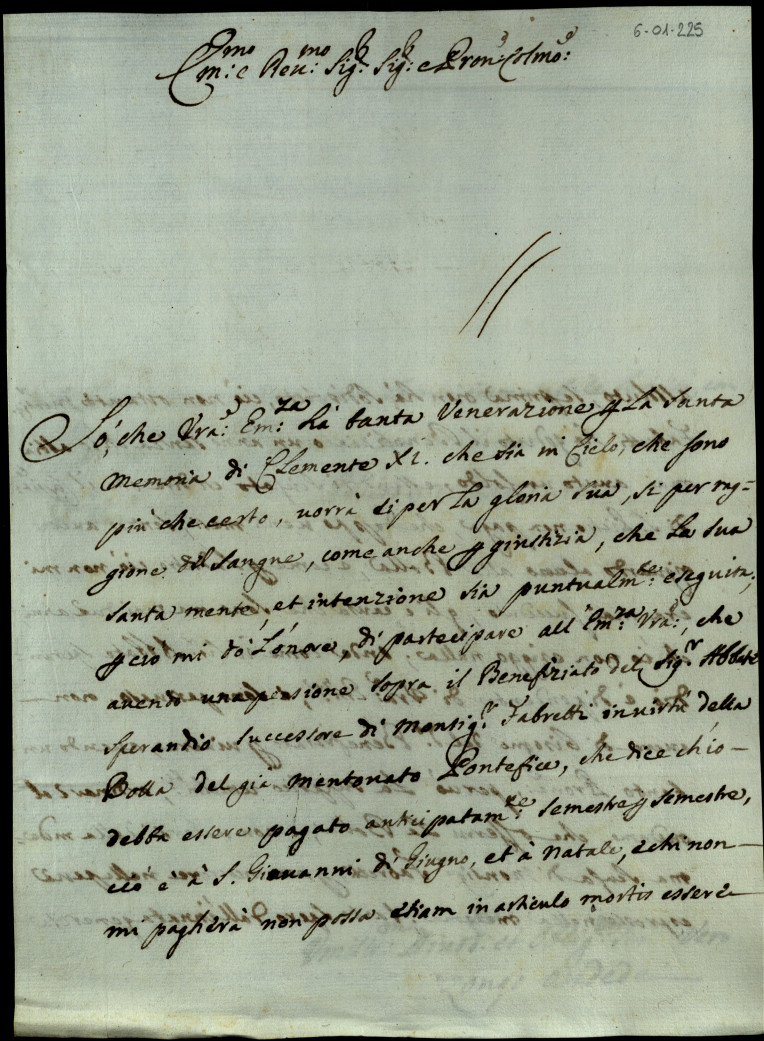 6-01-225
Em:mo e Reu:mo Sig:r Sig:r e Pron: Colmo:
Sò, che Vra: Em:za hà tanta Venerazione p la Santa
Memoria di Clemente XI. che sia in Cielo, che sono
più che certo, uorrà si per la gloria sua, si per rag-
gione del Sangue, come anche p giustizia, che la sua
santa mente, et intenzione sia puntualm:te eseguita;
p ciò mi dò L'onore, di partecipare all'Em:za Vra:, che
auendo una pensione sopra il Benefiziato del Sig:r Abbate
Sperandio successore di Monsig:r Fabretti in uirtù della
Bolla del già mentouato Pontefice, che dice ch'io
debba essere pagato anticipatam:te semestre p semestre,
ciò è à S. Giouanni di Giugno, et à Natale, e chi non
mi pagherà non possa etiam in articulo mortis essere